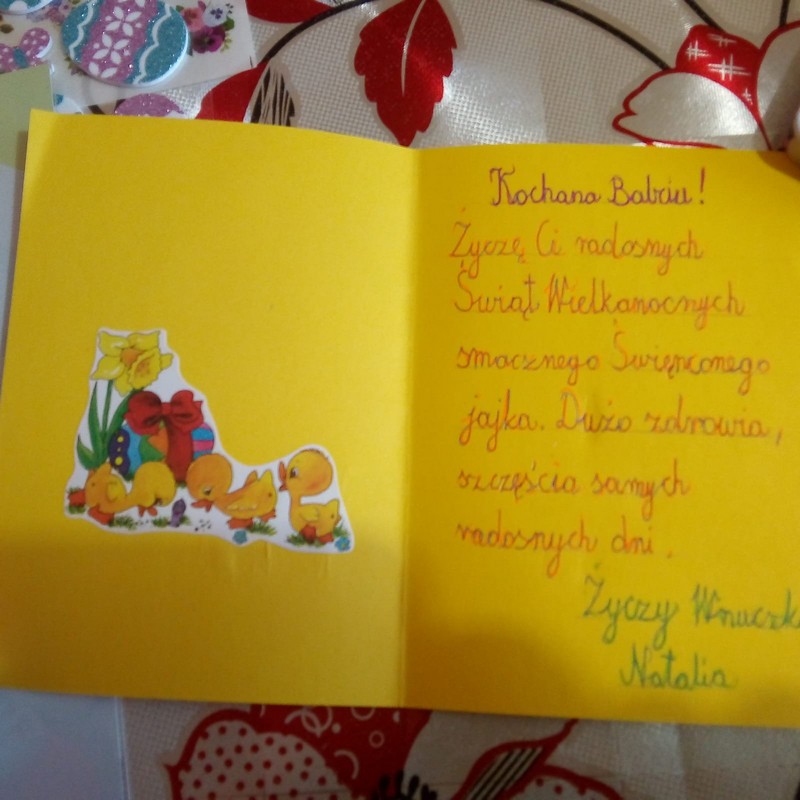 Kochana Babciu!
Życzę Ci radosnych
Świąt Wielkanocnych
smacznego Święnconego
jajka. Dużo zdrowia,
szczęścia samych
radosnych dni.
Życzy Wnuczk
Natalia